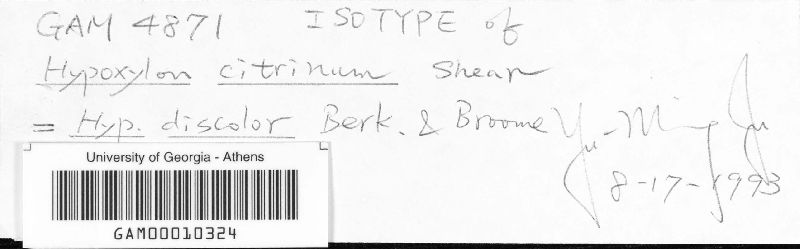 GAM 4871 ISOTYPE of
Hypoxylon citrinum Shear
= Hyp. discolor Berk. & Broome Yu-Ming Ju
8-17-1993
University of Georgia - Athens
GAM00010324